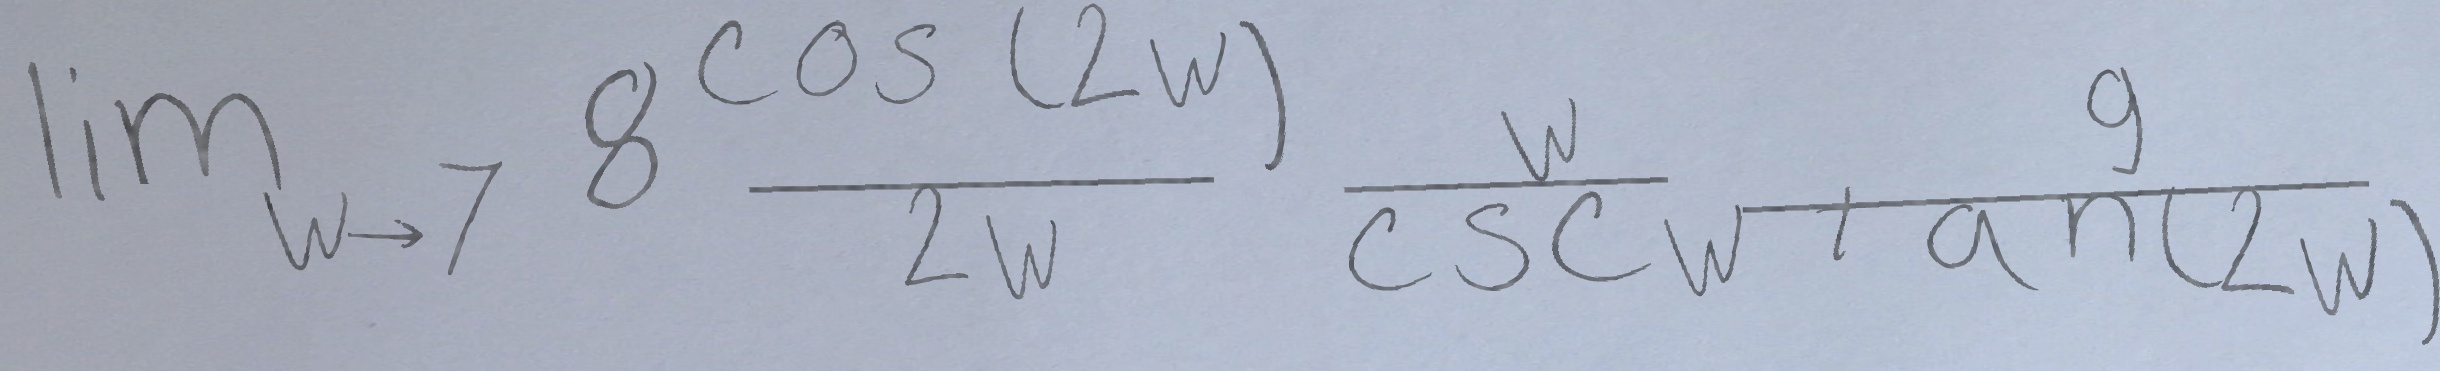 \lim_{w \to 7} 8 \frac{\cos(2w)}{2w} \frac{w}{\csc w} \frac{9}{\tan(2w)}